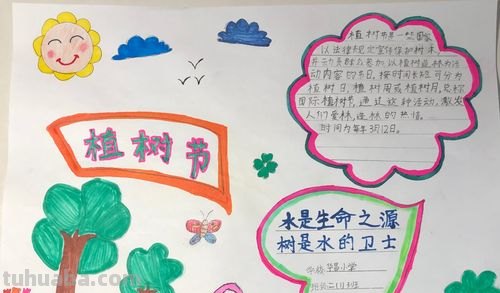 植树节是一些国家
以法律规定宣传保护树木,
并动员群众参加以植树造林为活
动内容的节日,按时间长短可分为
植树日、植树周或植树月,总称
国际植树节,通过这种活动,激发
人们爱林、造林的热情。
时间为每年3月12日。
植树节
水是生命之源
树是水的卫士
学校 小学
班级 二(1)班
tuhuaba.com